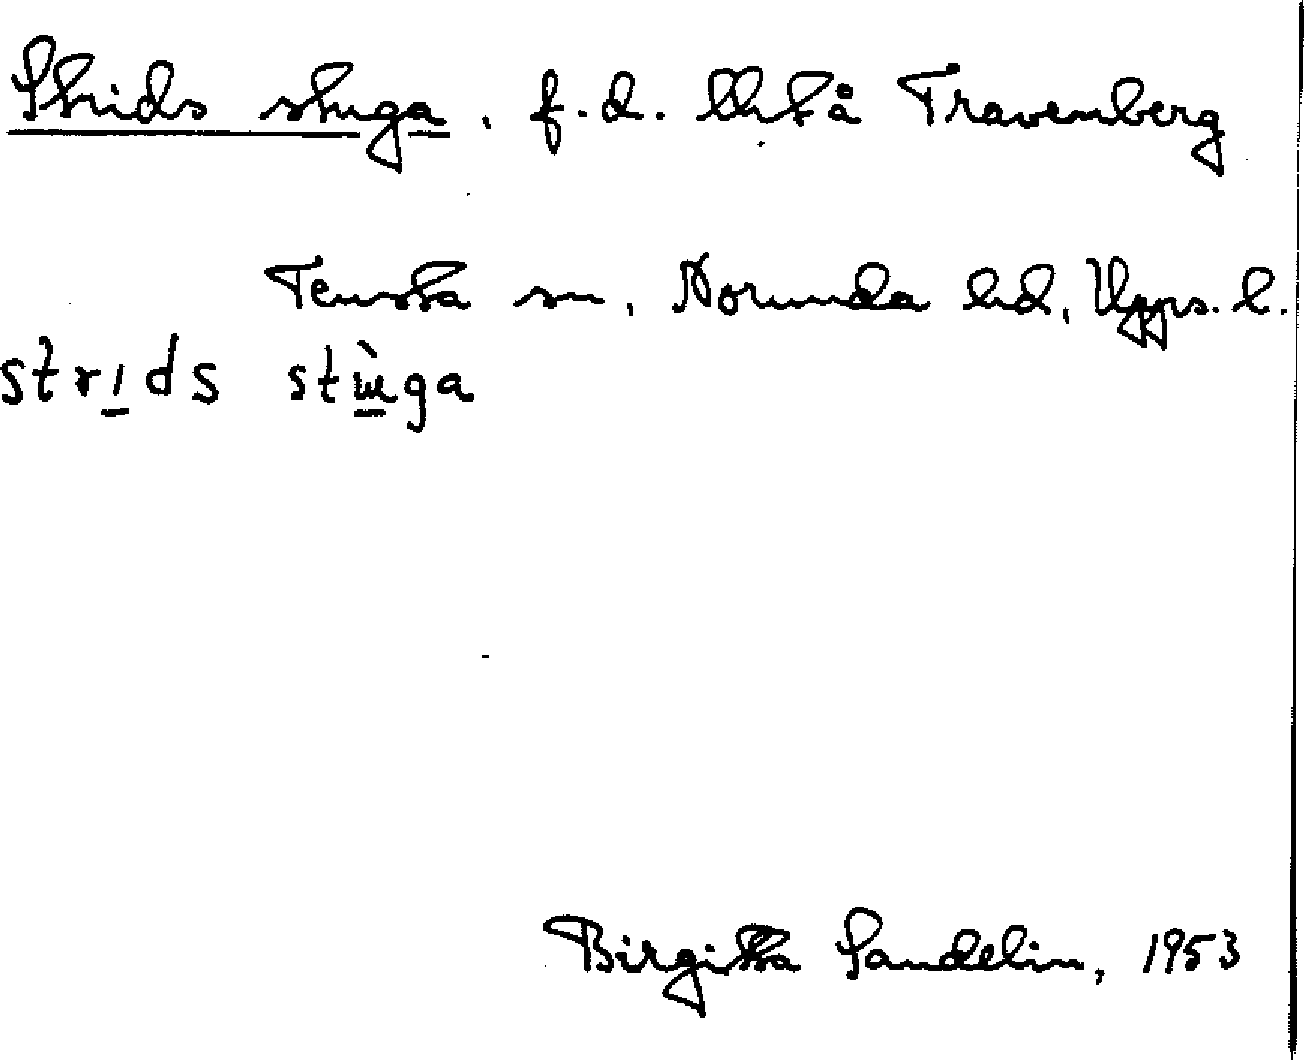 Strids stuga, f.d. lht å Travenberg
Tensta sn, Norunda hd, Upps. l.
strids stùga
Birgitta Sandelin, 1953